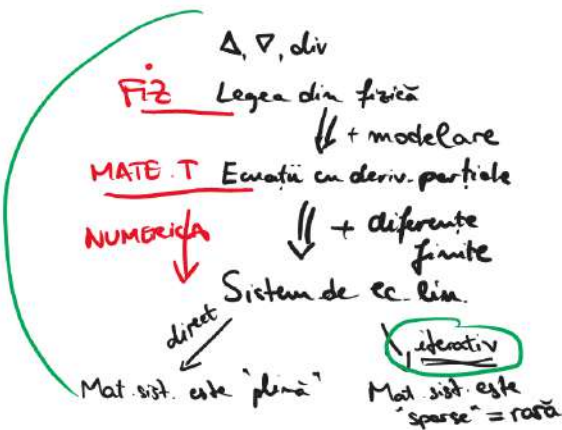 Δ, ∇, div
Fiz Legea din fizică
⇓ + modelare
MATE.T Ecuații cu deriv. parțiale
NUMERICA ⇓ + diferențe
finite
Sistem de ec. lin.
direct
iterativ
Mat. sist. este "plină" Mat. sist. este
"sparse" = rară